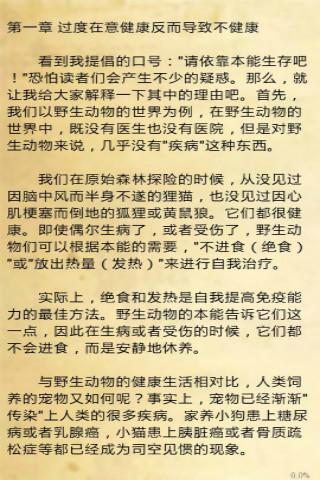 第一章 过度在意健康反而导致不健康
看到我提倡的口号："请依靠本能生存吧
！"恐怕读者们会产生不少的疑惑。那么，就
让我给大家解释一下其中的理由吧。首先，
我们以野生动物的世界为例，在野生动物的
世界中，既没有医生也没有医院，但是对野
生动物来说，几乎没有"疾病"这种东西。
我们在原始森林探险的时候，从没见过
因脑中风而半身不遂的狸猫，也没见过因心
肌梗塞而倒地的狐狸或黄鼠狼。它们都很健
康。即使偶尔生病了，或者受伤了，野生动
物们可以根据本能的需要，"不进食（绝食）
"或"放出热量（发热）"来进行自我治疗。
实际上，绝食和发热是自我提高免疫能
力的最佳方法。野生动物的本能告诉它们这
一点，因此在生病或者受伤的时候，它们都
不会进食，而是安静地休养。
与野生动物的健康生活相对比，人类饲
养的宠物又如何呢？事实上，宠物已经渐渐"
传染"上人类的很多疾病。家养小狗患上糖尿
病或者乳腺癌，小猫患上胰脏癌或者骨质疏
松症等都已经成为司空见惯的现象。
0.0%